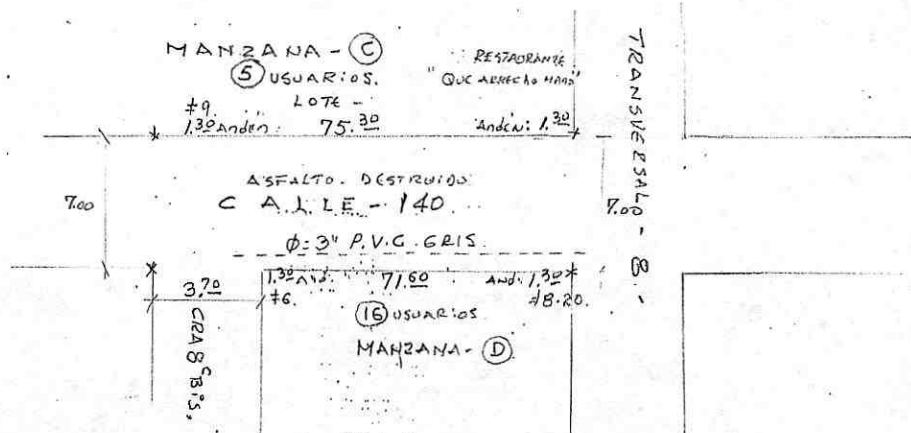 MANZANA - C
5 USUARIOS.
RESTAURANTE
"QUE ARRECHO MANO"
LOTE -
#9
1.30 Anden: 75.30 Anden: 1.30
TRANSVERSAL - 8.-
ASFALTO. DESTRUIDO
7.00 CALLE - 140 7.00
Ø: 3" P.V.C. GRIS.
1.30 And: 71.60 And: 1.30
3.70 #6. #8-20.
16 USUARIOS
CRA 8 C BIS.
MANZANA - D